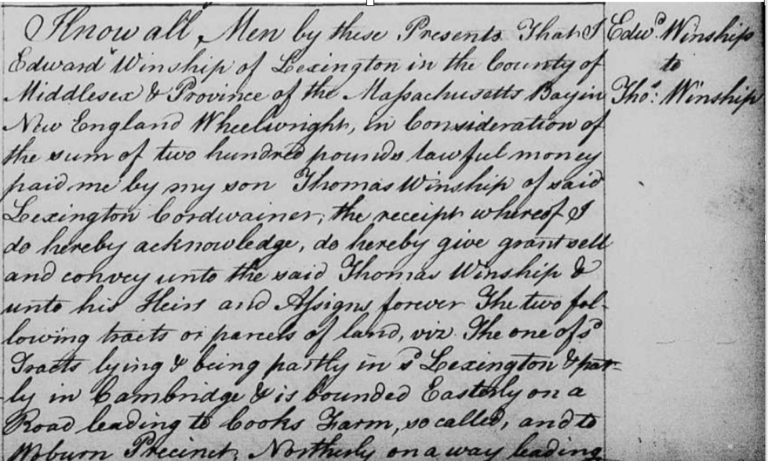 Know all Men by these Presents That I
Edward Winship of Lexington in the County of
Middlesex & Province of the Massachusetts Bay in
New England Wheelwright, in Consideration of
the sum of two hundred pounds lawful money
paid me by my son Thomas Winship of said
Lexington Cordwainer, the receipt whereof I
do hereby acknowledge, do hereby give grant sell
and convey unto the said Thomas Winship &
unto his Heirs and Assigns forever The two fol-
lowing tracts or parcels of land, viz. The one of sd
Tracts lying & being partly in sd Lexington & part-
ly in Cambridge & is bounded Easterly on a
Road leading to Cooks Farm, so called, and to
Woburn Precinct, Northerly on a way leading
Edwd Winship
to
Thos: Winship